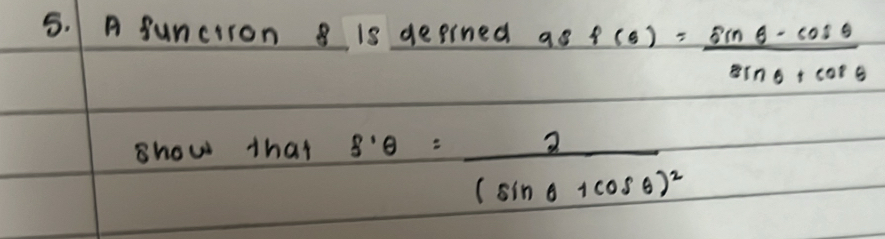 5. A function f is defined as f(θ) = (sin θ - cos θ) / (sin θ + cos θ)
Show that f'θ = 2 / (sin θ + cos θ)²